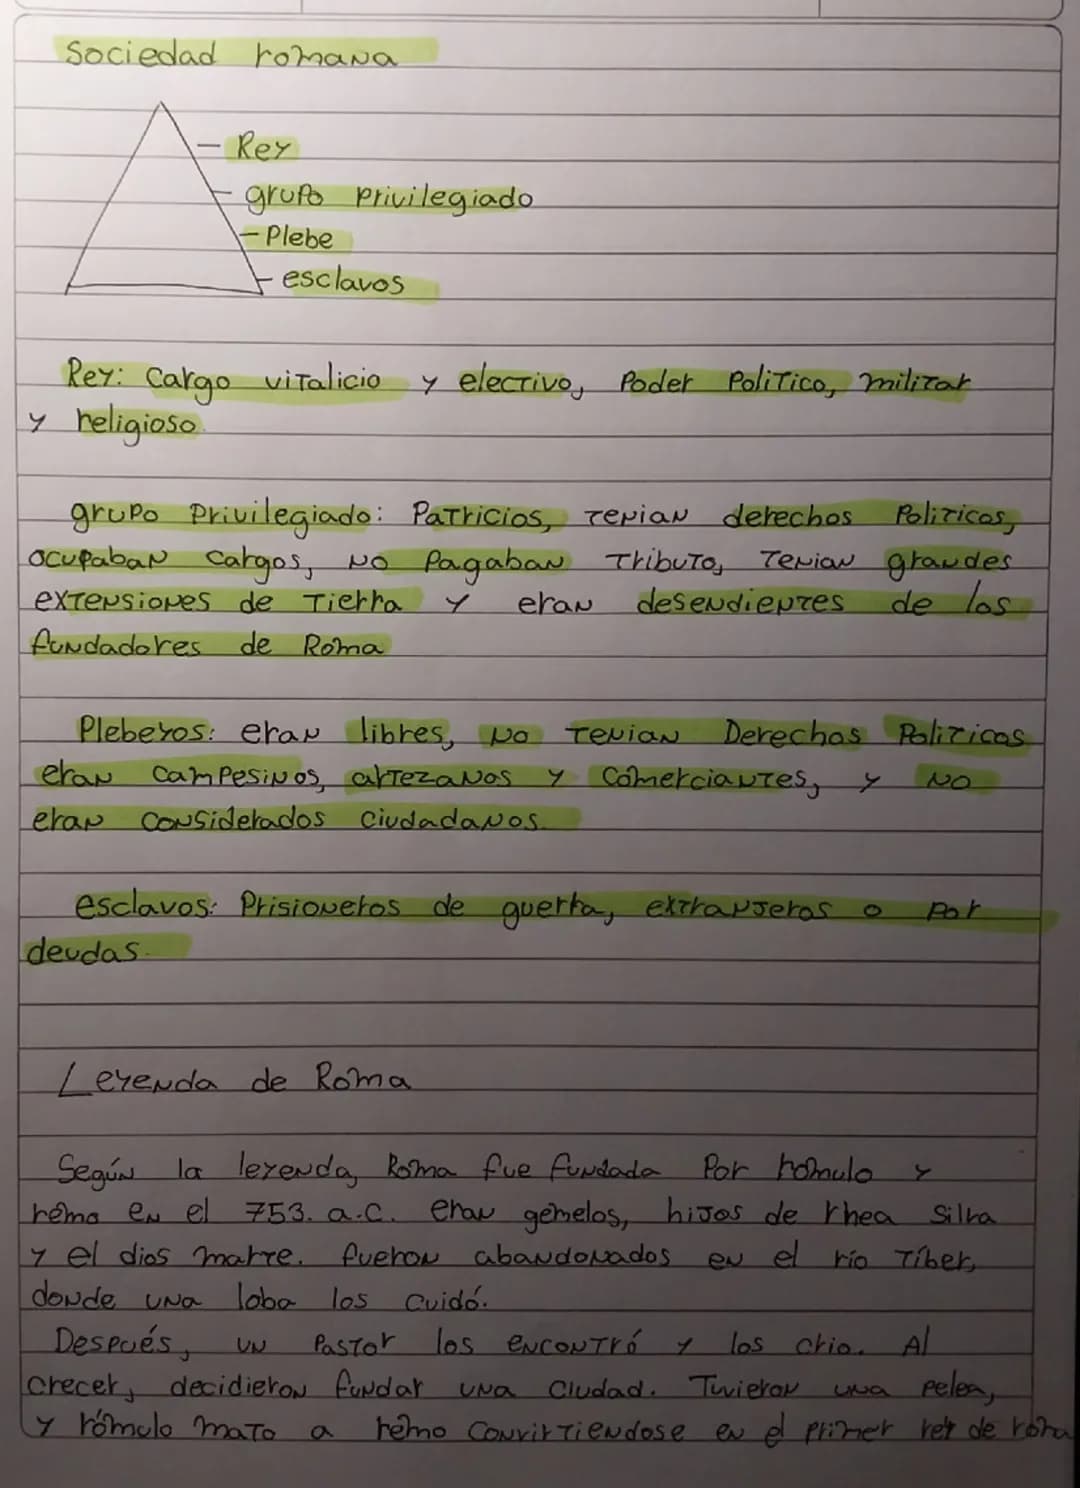 Sociedad romana
Rey
grupo Privilegiado
Plebe
esclavos
Rey: Cargo vitalicio y electivo, Poder Politico, militar
y religioso.
grupo Privilegiado: Patricios, Tenian derechos Politicos,
ocupaban cargos, no Pagaban Tributo, Tenian grandes
extensiones de Tierra y eran desendientes de los
fundadores de Roma
Plebeyos: eran libres, no Tenian Derechos Politicos
eran campesinos, artezanos y Comerciantes, y no
eran considerados ciudadanos.
esclavos: Prisioneros de guerra, extranjeros o por
deudas.
Leyenda de Roma
Según la leyenda, Roma fue fundada Por rómulo y
rémo en el 753. a.c. eran gémelos, hijos de rhea Silva
y el dios marte. fueron abandonados en el río Tíber,
donde una loba los cuidó.
Después, un Pastor los encontró y los crio. Al
crecer, decidieron fundar una ciudad. Tuvieron una pelea,
y rómulo mato a rémo convirtiendose en el primer rey de roma